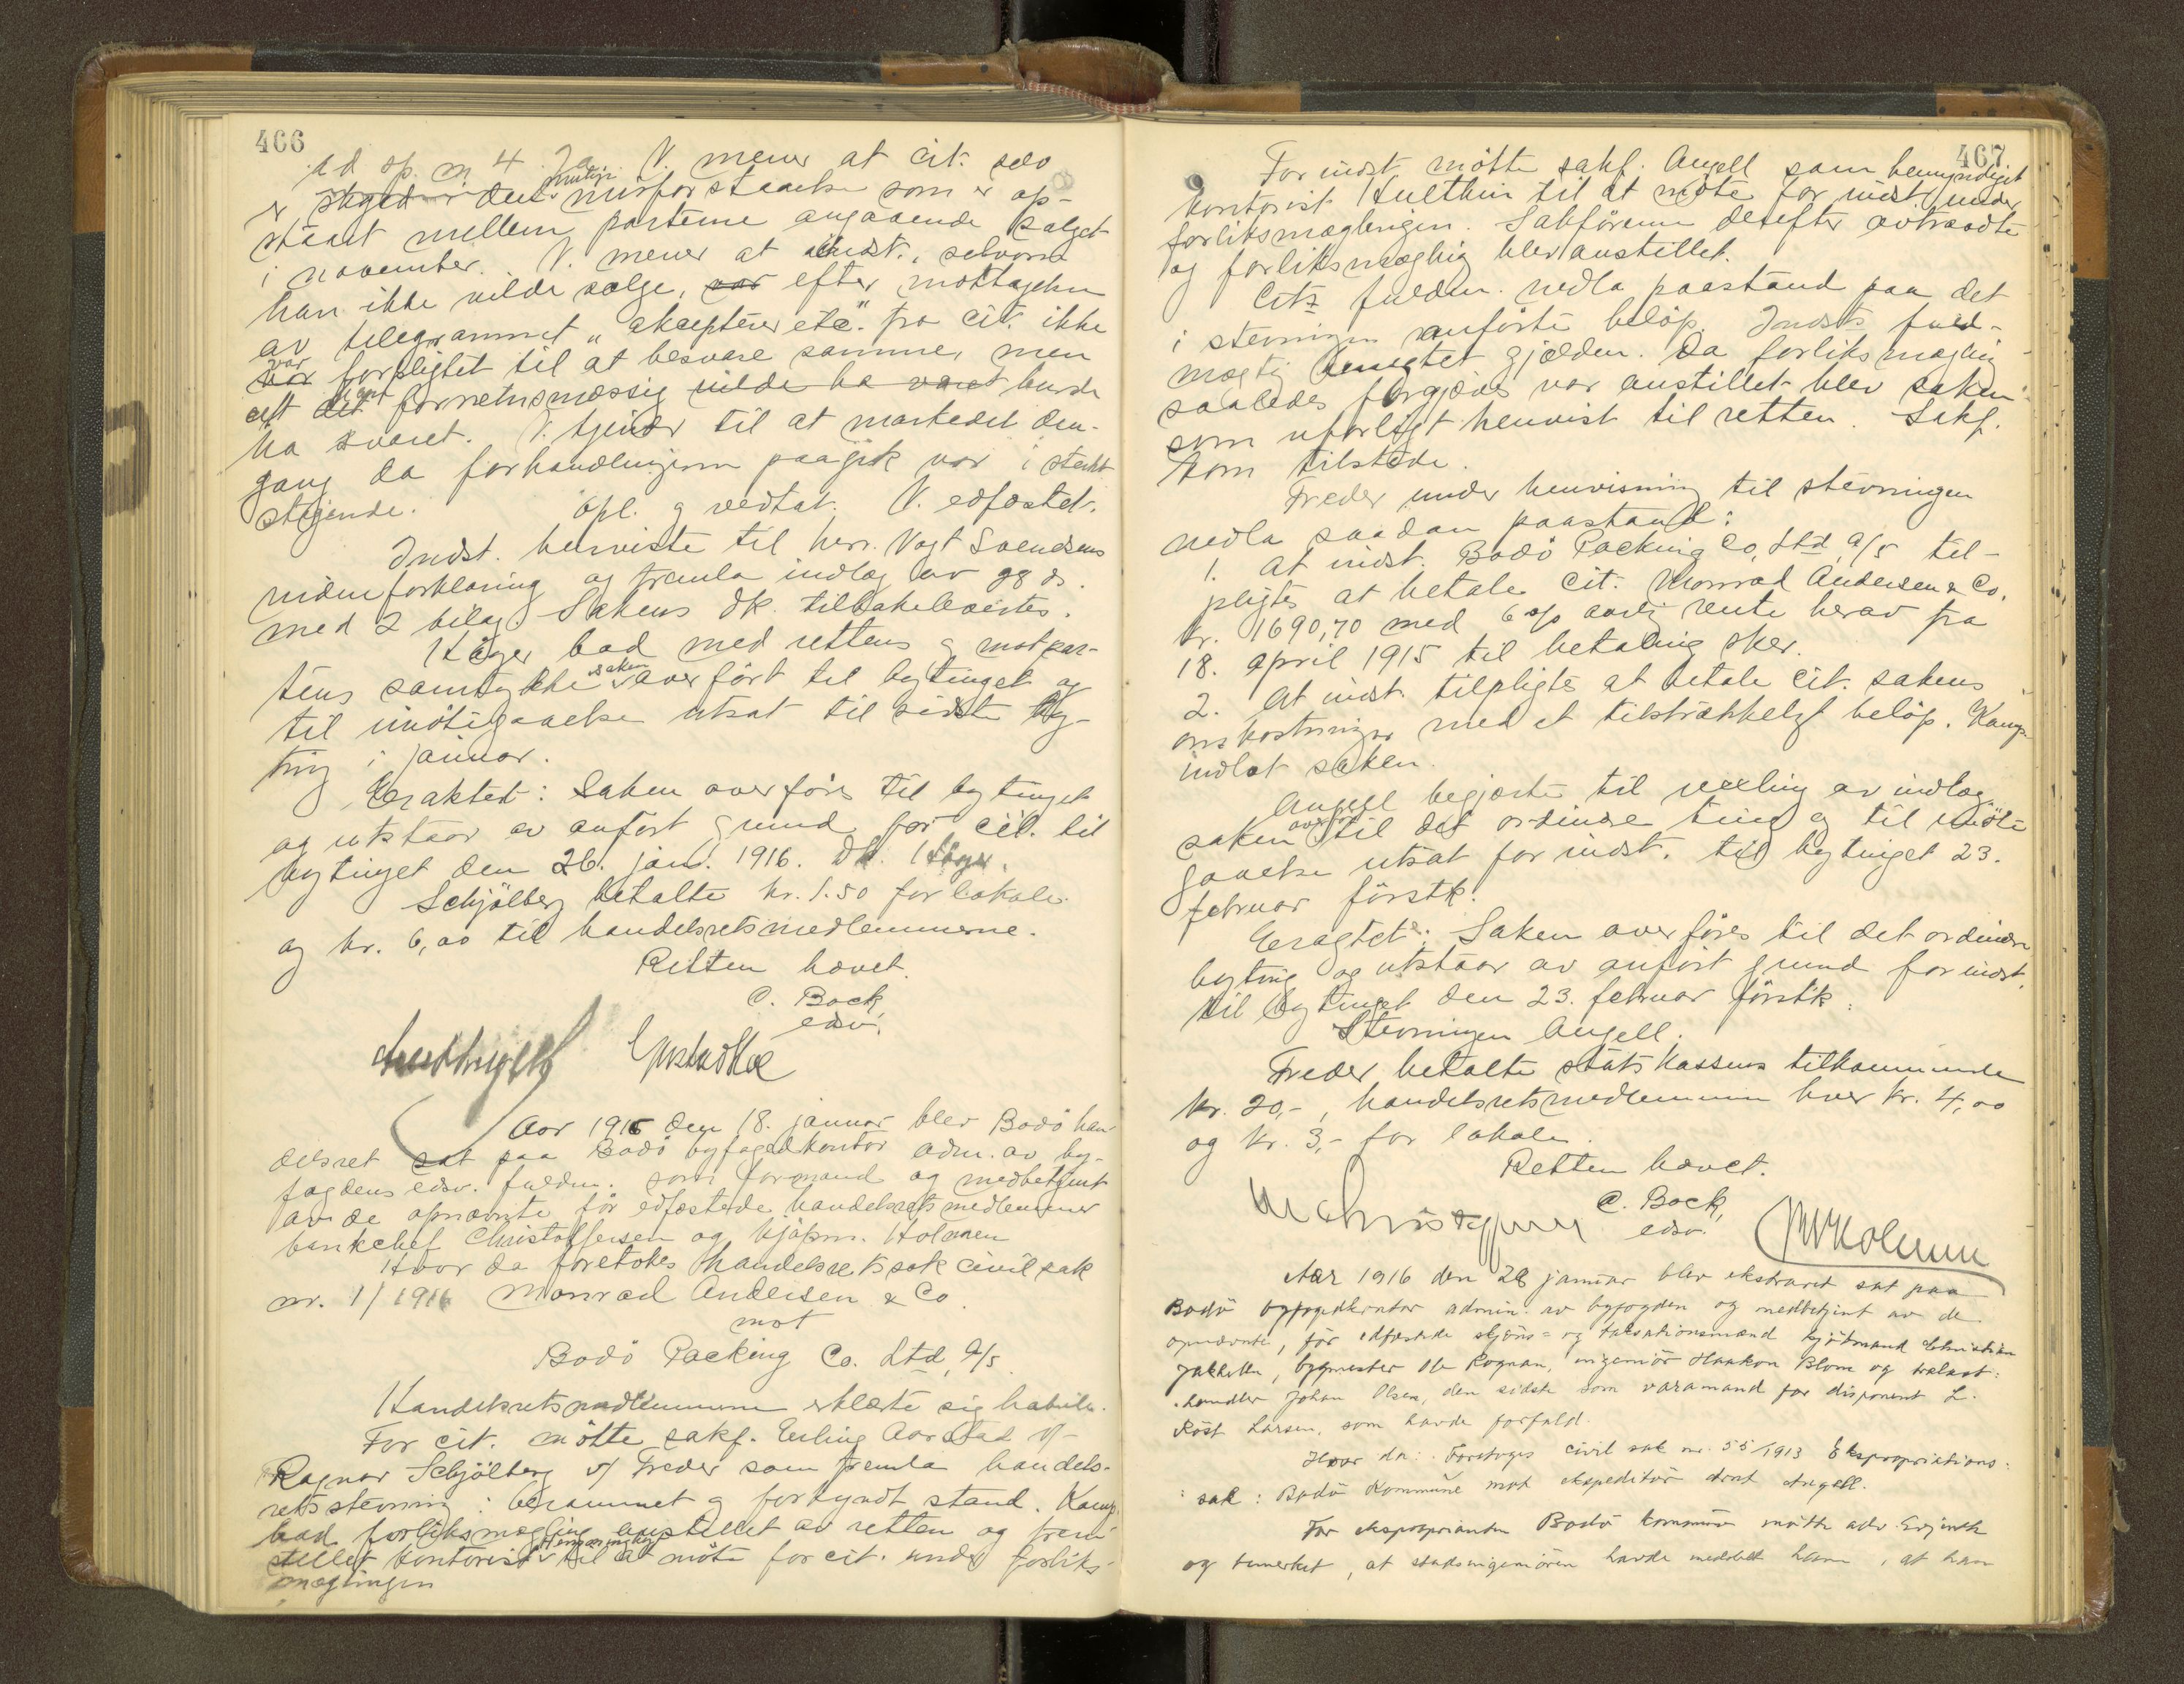 466
Ad sp. m 4 Ja. V. mener at cit. selv
er skyld i den mulige misforstaaelse som er op-
staaet mellem parterne angaaende salget
i november. V. mener at indst., selvom
han ikke vilde sælge, var efter mottagelsen
av telegrammet "aksepterer etc." fra cit. ikke
var forpligtet til at besvare samme, men
at det forretnsmæssig vilde ha været burde
ha svaret. V. kjender til at markedet den-
gang da forhandlingerne paagik var i sterkt
stigende. Opl. og vedtat. V. edfæstet.
Indst. henviste til herr Vogt Svendsens
vidneforklaring og fremla indlæg av 28 ds.
med 2 bilag. Sakens dk. tilbakeleveredes.
Häger bad med rettens og motpar-
tens samtykke saken overført til bytinget og
til imøtegaaelse utsat til sidste by-
ting i januar.
Eragtet: Saken overføres til bytinget
og utstaar av anført grund for cit. til
bytinget den 26. jan. 1916. Dk. Häger.
Schjölberg betalte kr. 1.50 for lokale
og kr. 6,00 til handelsretsmedlemmerne.
Retten hævet.
C. Bock,
edsv.
Aar 1916 den 18. januar blev Bodö han-
delsret sat paa Bodö byfogedkontor adm. av by-
fogdens edsv. fuldm. som formand og medbetjent
av de opnævnte før edfæstede handelsretsmedlemmer
bankchef Christoffersen og kjöpm. Holmen
Hvor da foretokes handelsretssak civil sak
nr. 1/1916 Monrad Andersen & Co.
mot
Bodö Packing Co. Ltd, A/S.
Handelsretsmedlemmerne erklærte sig habile.
For cit. mötte sakf. Erling Aarstad v/
Ragnar Schjölberg v/ Freder som fremla handels-
retsstevning: berammet og forkyndt stand. Kamp
bad forliksmægling anstillet av retten og frem-
stillet kontorist til at møte for cit. under forliks-
mæglingen
467
For indst. mötte sakf. Angell som bemyndiget
kontorist Hulthin til at møte for indst. under
forliksmæglingen. Sakförerne derefter avtraadte
og forliksmægling blev anstillet.
Cits fuldm. nedla paastand paa det
i stevningen anförte belöp. Indsts fuld-
mægtig benegtet gjælden. Da forliksmægling
saaledes forgjæves var anstillet blev saken
som uforligt henvist til retten. Sakf.
kom tilstede.
Freder under henvisning til stevningen
nedla saadan paastand:
1. At indst. Bodö Packing Co, Ltd A/S til-
pligtes at betale cit. Monrad Andersen & Co.
kr. 1690,70 med 6 o/o aarlig rente herav fra
18. april 1915 til betaling sker.
2. At indst. tilpligtes at betale cit. sakens
omkostninger med et tilstrækkeligt belöp. Kamp
indlot saken.
Angell begjærte til veksling av indlæg
saken overf. til det ordinære ting og til imöte
gaaelse utsat for indst. til bytinget 23.
februar förstk.
Eragtet: Saken overföres til det ordinære
byting og utstaar av anfört grund for indst.
til bytinget den 23. februar förstk.
Stevningen Angell.
Freder betalte statskassens tilkommende
kr. 20,-, handelsretsmedlemmerne hver kr. 4,00
og kr. 3,- for lokale.
Retten hævet.
C. Bock,
edsv.
Aar 1916 den 28 januar blev ekstraret sat paa
Bodö byfogedkontor admin. av byfogden og medbetjent av de
opnævnte, før edfæstede skjöns- og taksationsmænd kjöbmand Christian
Jakhelln, bygmester Ole Rognan, ingeniör Haakon Blom og trælast-
handler Johan Olsen, den sidste som varamand for disponent L.
Röst Larsen, som havde forfald.
Hvor da: Foretoges civil sak nr. 55/1913 Ekspropriations-
sak: Bodö kommune mot ekspeditör Arnt Angell.
For eksproprianten Bodö kommune mötte adv.
og bemerket, at stadsingeniören havde meddelt ham, at han